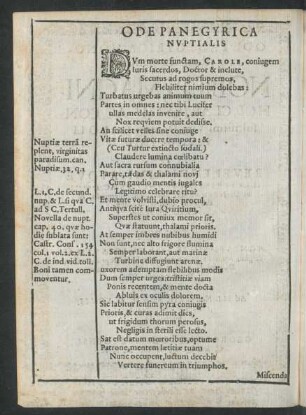 ODE PANEGYRICA
NVPTIALIS
DVm morte functam, CAROLE, coniugem
Iuris sacerdos, Doctor & inclute,
Secutus ad rogos supremos,
Flebiliter nimium dolebas:
Turbatus urgebas animum tuum
Partes in omnes: nec tibi Lucifer
ullas medelas invenire, aut
Nox requiem potuit dedisse.
An scilicet velles sine coniuge
Vitæ futura ducere tempora: &
(Ceu Turtur extincto sodali)
Claudere lumina cœlibatu?
Aut sacra rursum connubialia
Parare, tædas & thalami novi
Cum gaudio mentis iugales
Legitimo celebrare ritu?
Et mente volvisti, dubio procul,
Antiqua scite Iura Qviritium,
Superstes ut coniux memor sit,
Quæ statuunt, thalami prioris.
At semper imbres nubibus humidi
Non sunt, nec alto frigore flumina
Semper laborant, aut marinæ
Turbine diffugiunt arenæ.
uxorem ademptam flebilibus modis
Dum semper urges: tristitiæ viam
Ponis recentem, & mente docta
Abluis ex oculis dolorem.
Sic labitur sensim pyra coniugis
Prioris, & curas adimit dies,
ut frigidum thorum perosus,
Negligis in sterili esse lecto.
Sat est datum mœroribus, optume
Patrone, mentem lætitiæ tuam
Nunc occupent, luctum decebit
Vertere funereum in triumphos.
Miscenda
Nuptiæ terrā
replent, virginitas
paradisum. can.
Nuptiæ, 32, q. 1
L. 1, C. de secund.
nup. & L. si quâ C.
ad S C. Tertull.
Novella de nupt.
cap. 40. quæ ho-
die sublata sunt:
Castr. Conf. 154
col. 1 vol. 2. ex L. 2.
C. de ind vid. toll.
Boni tamen com-
moventur.